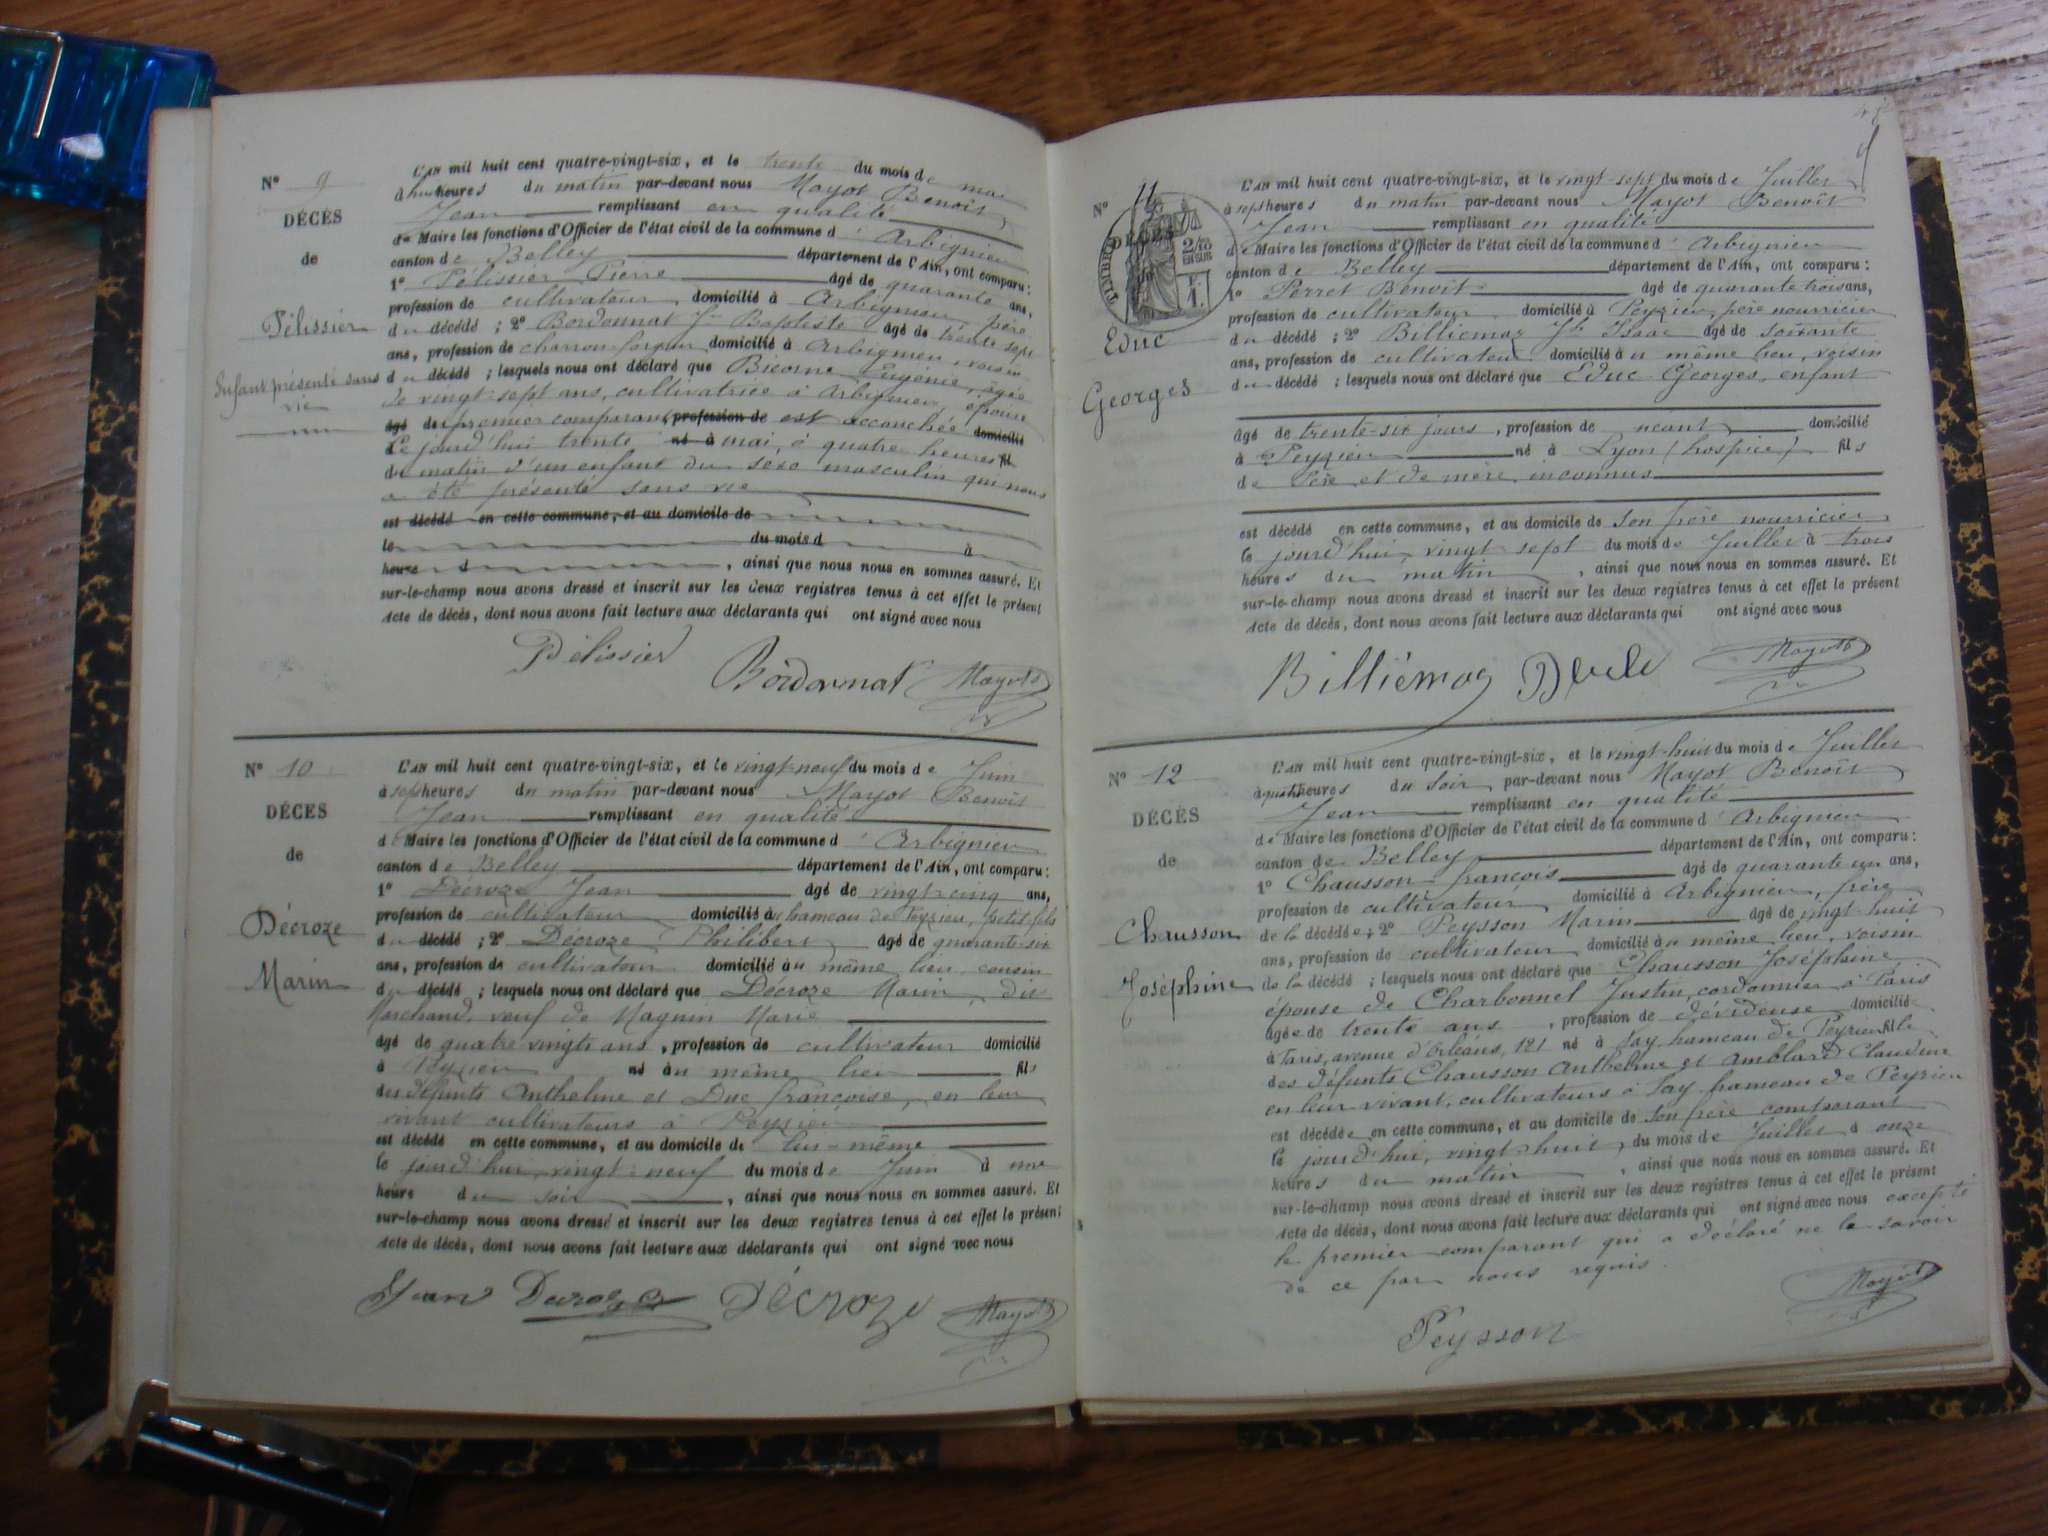 N° 9
DÉCÈS
de
Pélissier
Enfant présenté sans
vie
L'AN mil huit cent quatre-vingt-six, et le trente du mois de mai
à huit heures du matin par-devant nous Mayot Benoît
Jean remplissant en qualité
de Maire les fonctions d'Officier de l'état civil de la commune d'Arbignieu
canton de Belley département de l'Ain, ont comparu :
1° Pélissier Pierre âgé de quarante ans,
profession de cultivateur domicilié à Arbignieu, père
du décédé ; 2° Bordonnat Jn Baptiste âgé de trente sept
ans, profession de charron-forgeur domicilié à Arbignieu, voisin
du décédé ; lesquels nous ont déclaré que Bicorne Eugénie, âgée
de vingt-sept ans, cultivatrice à Arbignieu, épouse
âgé du premier comparant, profession de est accouchée domicilié
le jourd'hui trente né à mai, à quatre heures fil
du matin d'un enfant du sexe masculin qui nous
a été présenté sans vie
est décédé en cette commune, et au domicile de
le du mois d à
heure d , ainsi que nous nous en sommes assuré. Et
sur-le-champ nous avons dressé et inscrit sur les deux registres tenus à cet effet le présent
Acte de décès, dont nous avons fait lecture aux déclarants qui ont signé avec nous
Pélissier Bordonnat Mayot
N° 10
DÉCÈS
de
Décroze
Marin
L'AN mil huit cent quatre-vingt-six, et le vingt-neuf du mois de Juin
à sept heures du matin par-devant nous Mayot Benoît
Jean remplissant en qualité
d Maire les fonctions d'Officier de l'état civil de la commune d'Arbignieu
canton de Belley département de l'Ain, ont comparu :
1° Décroze Jean âgé de vingt-cinq ans,
profession de cultivateur domicilié à hameau de Peyzieu, petit fils
du décédé ; 2° Décroze Philibert âgé de quarante-six
ans, profession de cultivateur domicilié au même lieu, cousin
du décédé ; lesquels nous ont déclaré que Décroze Marin, dit
Marchand, veuf de Magnin Marie
âgé de quatre vingts ans, profession de cultivateur domicilié
à Peyzieu né au même lieu fils
des défunts Anthelme et Duc françoise, en leur
vivant cultivateurs à Peyzieu
est décédé en cette commune, et au domicile de lui-même
le jourd'hui vingt-neuf du mois de Juin à une
heure du soir , ainsi que nous nous en sommes assuré. Et
sur-le-champ nous avons dressé et inscrit sur les deux registres tenus à cet effet le présent
Acte de décès, dont nous avons fait lecture aux déclarants qui ont signé avec nous
Jean Décroze Mayot
N° 11
DÉCÈS
TIMBRE
2/10 EN SUR
F 1.
Educ
Georges
L'AN mil huit cent quatre-vingt-six, et le vingt-sept du mois de Juillet
à sept heures du matin par-devant nous Mayot Benoît
Jean remplissant en qualité
de Maire les fonctions d'Officier de l'état civil de la commune d'Arbignieu
canton de Belley département de l'Ain, ont comparu :
1° Perret Benoît âgé de quarante trois ans,
profession de cultivateur domicilié à Peyzieu, père nourricier
du décédé ; 2° Billiemaz Jh Isaac âgé de soixante
ans, profession de cultivateur domicilié au même lieu, voisin
du décédé ; lesquels nous ont déclaré que Educ Georges, enfant
âgé de trente-six jours, profession de néant domicilié
à Peyzieu né à Lyon (hospice) fils
de Père et de mère inconnus
est décédé en cette commune, et au domicile de son père nourricier
le jourd'hui, vingt sept du mois de Juillet à trois
heures du matin , ainsi que nous nous en sommes assuré. Et
sur-le-champ nous avons dressé et inscrit sur les deux registres tenus à cet effet le présent
Acte de décès, dont nous avons fait lecture aux déclarants qui ont signé avec nous
Billiémaz Mayot
N° 12
DÉCÈS
de
Chausson
Joséphine
L'AN mil huit cent quatre-vingt-six, et le vingt-huit du mois de Juillet
à quatre heures du soir par-devant nous Mayot Benoît
Jean remplissant en qualité
de Maire les fonctions d'Officier de l'état civil de la commune d'Arbignieu
canton de Belley département de l'Ain, ont comparu :
1° Chausson françois âgé de quarante un ans,
profession de cultivateur domicilié à Arbignieu, frère
de la décédée ; 2° Peysson Marin âgé de vingt huit
ans, profession de cultivateur domicilié au même lieu, voisin
de la décédé ; lesquels nous ont déclaré que Chausson Joséphine,
épouse de Charbonnel Justin, cordonnier à Paris
âgée de trente ans, profession de dévideuse domicilié
à Paris, avenue d'Orléans, 121 né à Say, hameau de Peyzieu fille
des défunts Chausson Anthelme et Amblard Claudine
en leur vivant, cultivateurs à Say hameau de Peyzieu
est décédée en cette commune, et au domicile de son frère comparant
le jourd'hui, vingt-huit du mois de Juillet à onze
heures du matin , ainsi que nous nous en sommes assuré. Et
sur-le-champ nous avons dressé et inscrit sur les deux registres tenus à cet effet le présent
Acte de décès, dont nous avons fait lecture aux déclarants qui ont signé avec nous excepté
le premier comparant qui a déclaré ne le savoir
de ce par nous requis.
Peysson Mayot